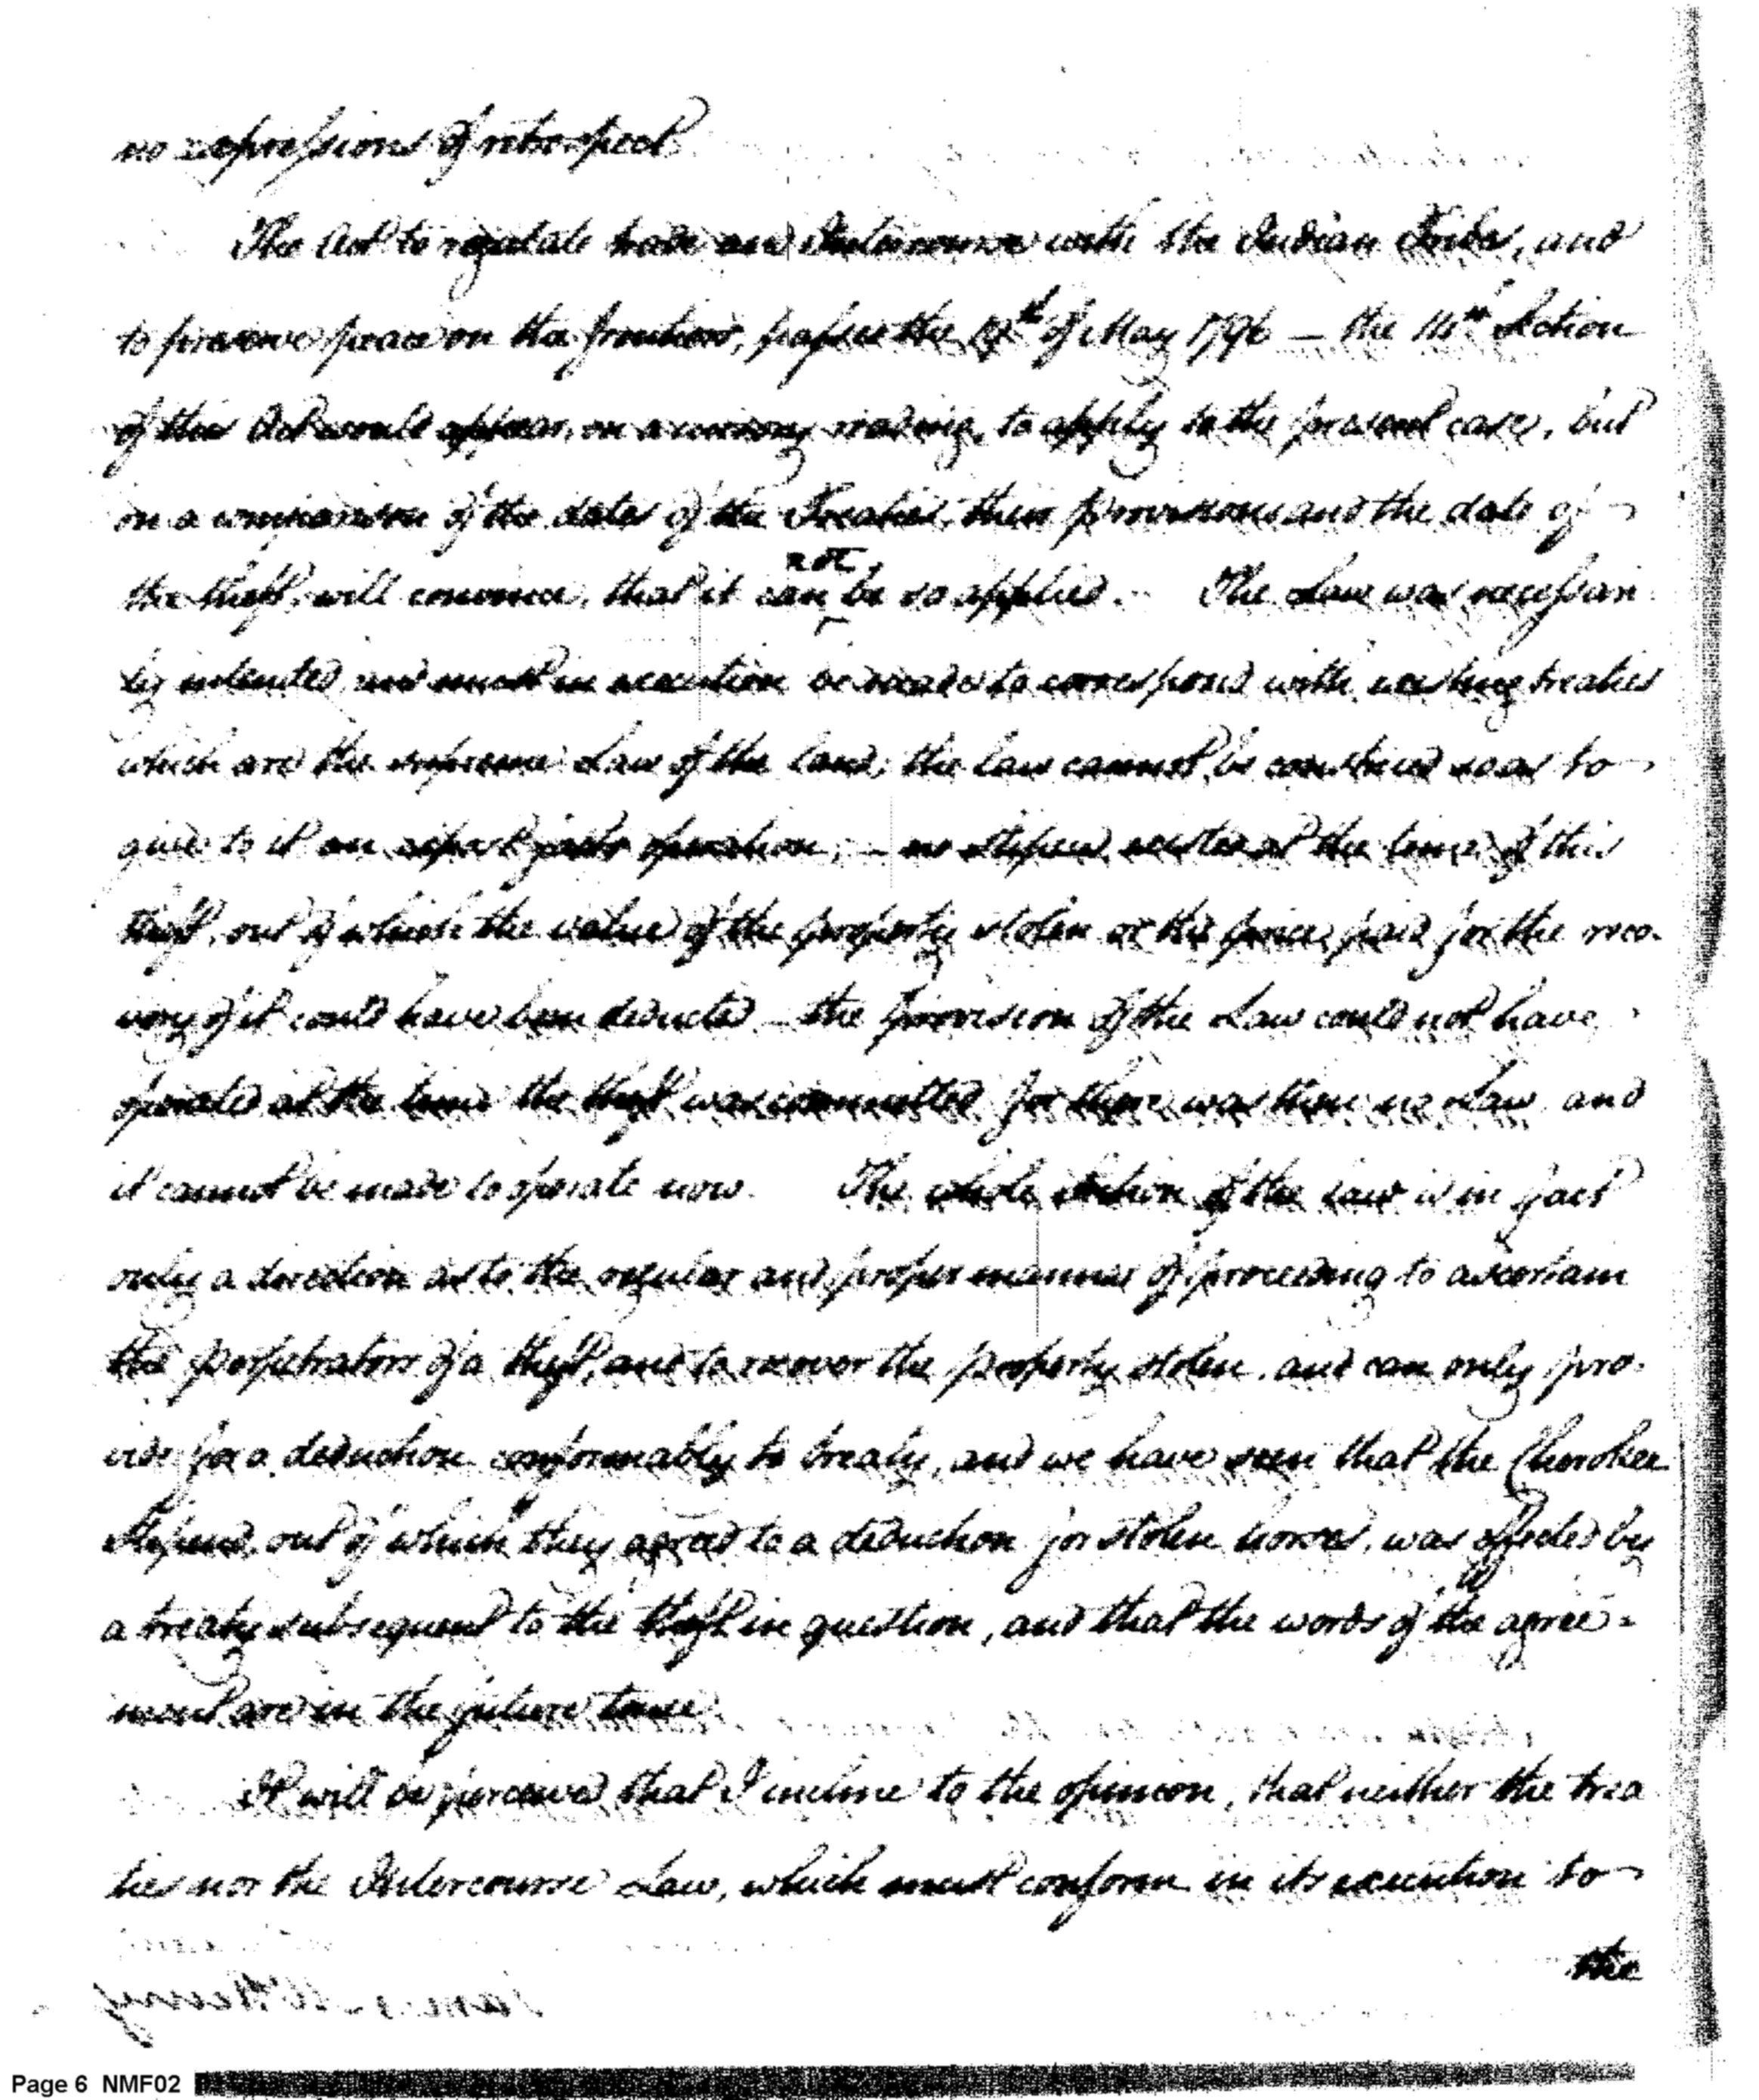 no expressions of retrospect.
The Act to regulate trade and Intercourse with the Indian Tribes, and
to preserve peace on the frontiers, passed the 19th of May 1796 — the 14th Section
of this Act would appear, on a cursory reading, to apply to the present case, but
on a comparison of the dates of the Treaties, their provisions and the date of
the theft, will convince, that it can not be so applied. The Law was necessari
ly intended and must in execution be made to correspond with existing treaties
which are the supreme Law of the land; the law cannot be construed so as to
give to it an expost facto operation; — no stipend existed at the time of this
theft, out of which the value of the property stolen or the price paid for the reco-
very of it could have been deducted — the provision of the Law could not have
operated at the time the theft was committed for there was then no Law and
it cannot be made to operate now. The whole Section of the Law is in fact
only a direction as to the regular and proper manner of proceeding to ascertain
the perpetrators of a theft, and to recover the property stolen, and can only pro-
vide for a deduction conformably to treaty, and we have seen that the Cherokee
Stipend, out of which they agreed to a deduction for stolen horses, was effected by
a treaty subsequent to the theft in question, and that the words of the agree=
ment are in the future tense.
It will be perceived that I incline to the opinion, that neither the trea
ties nor the Intercourse Law, which must conform in its execution to
the
Page 6 NMF02